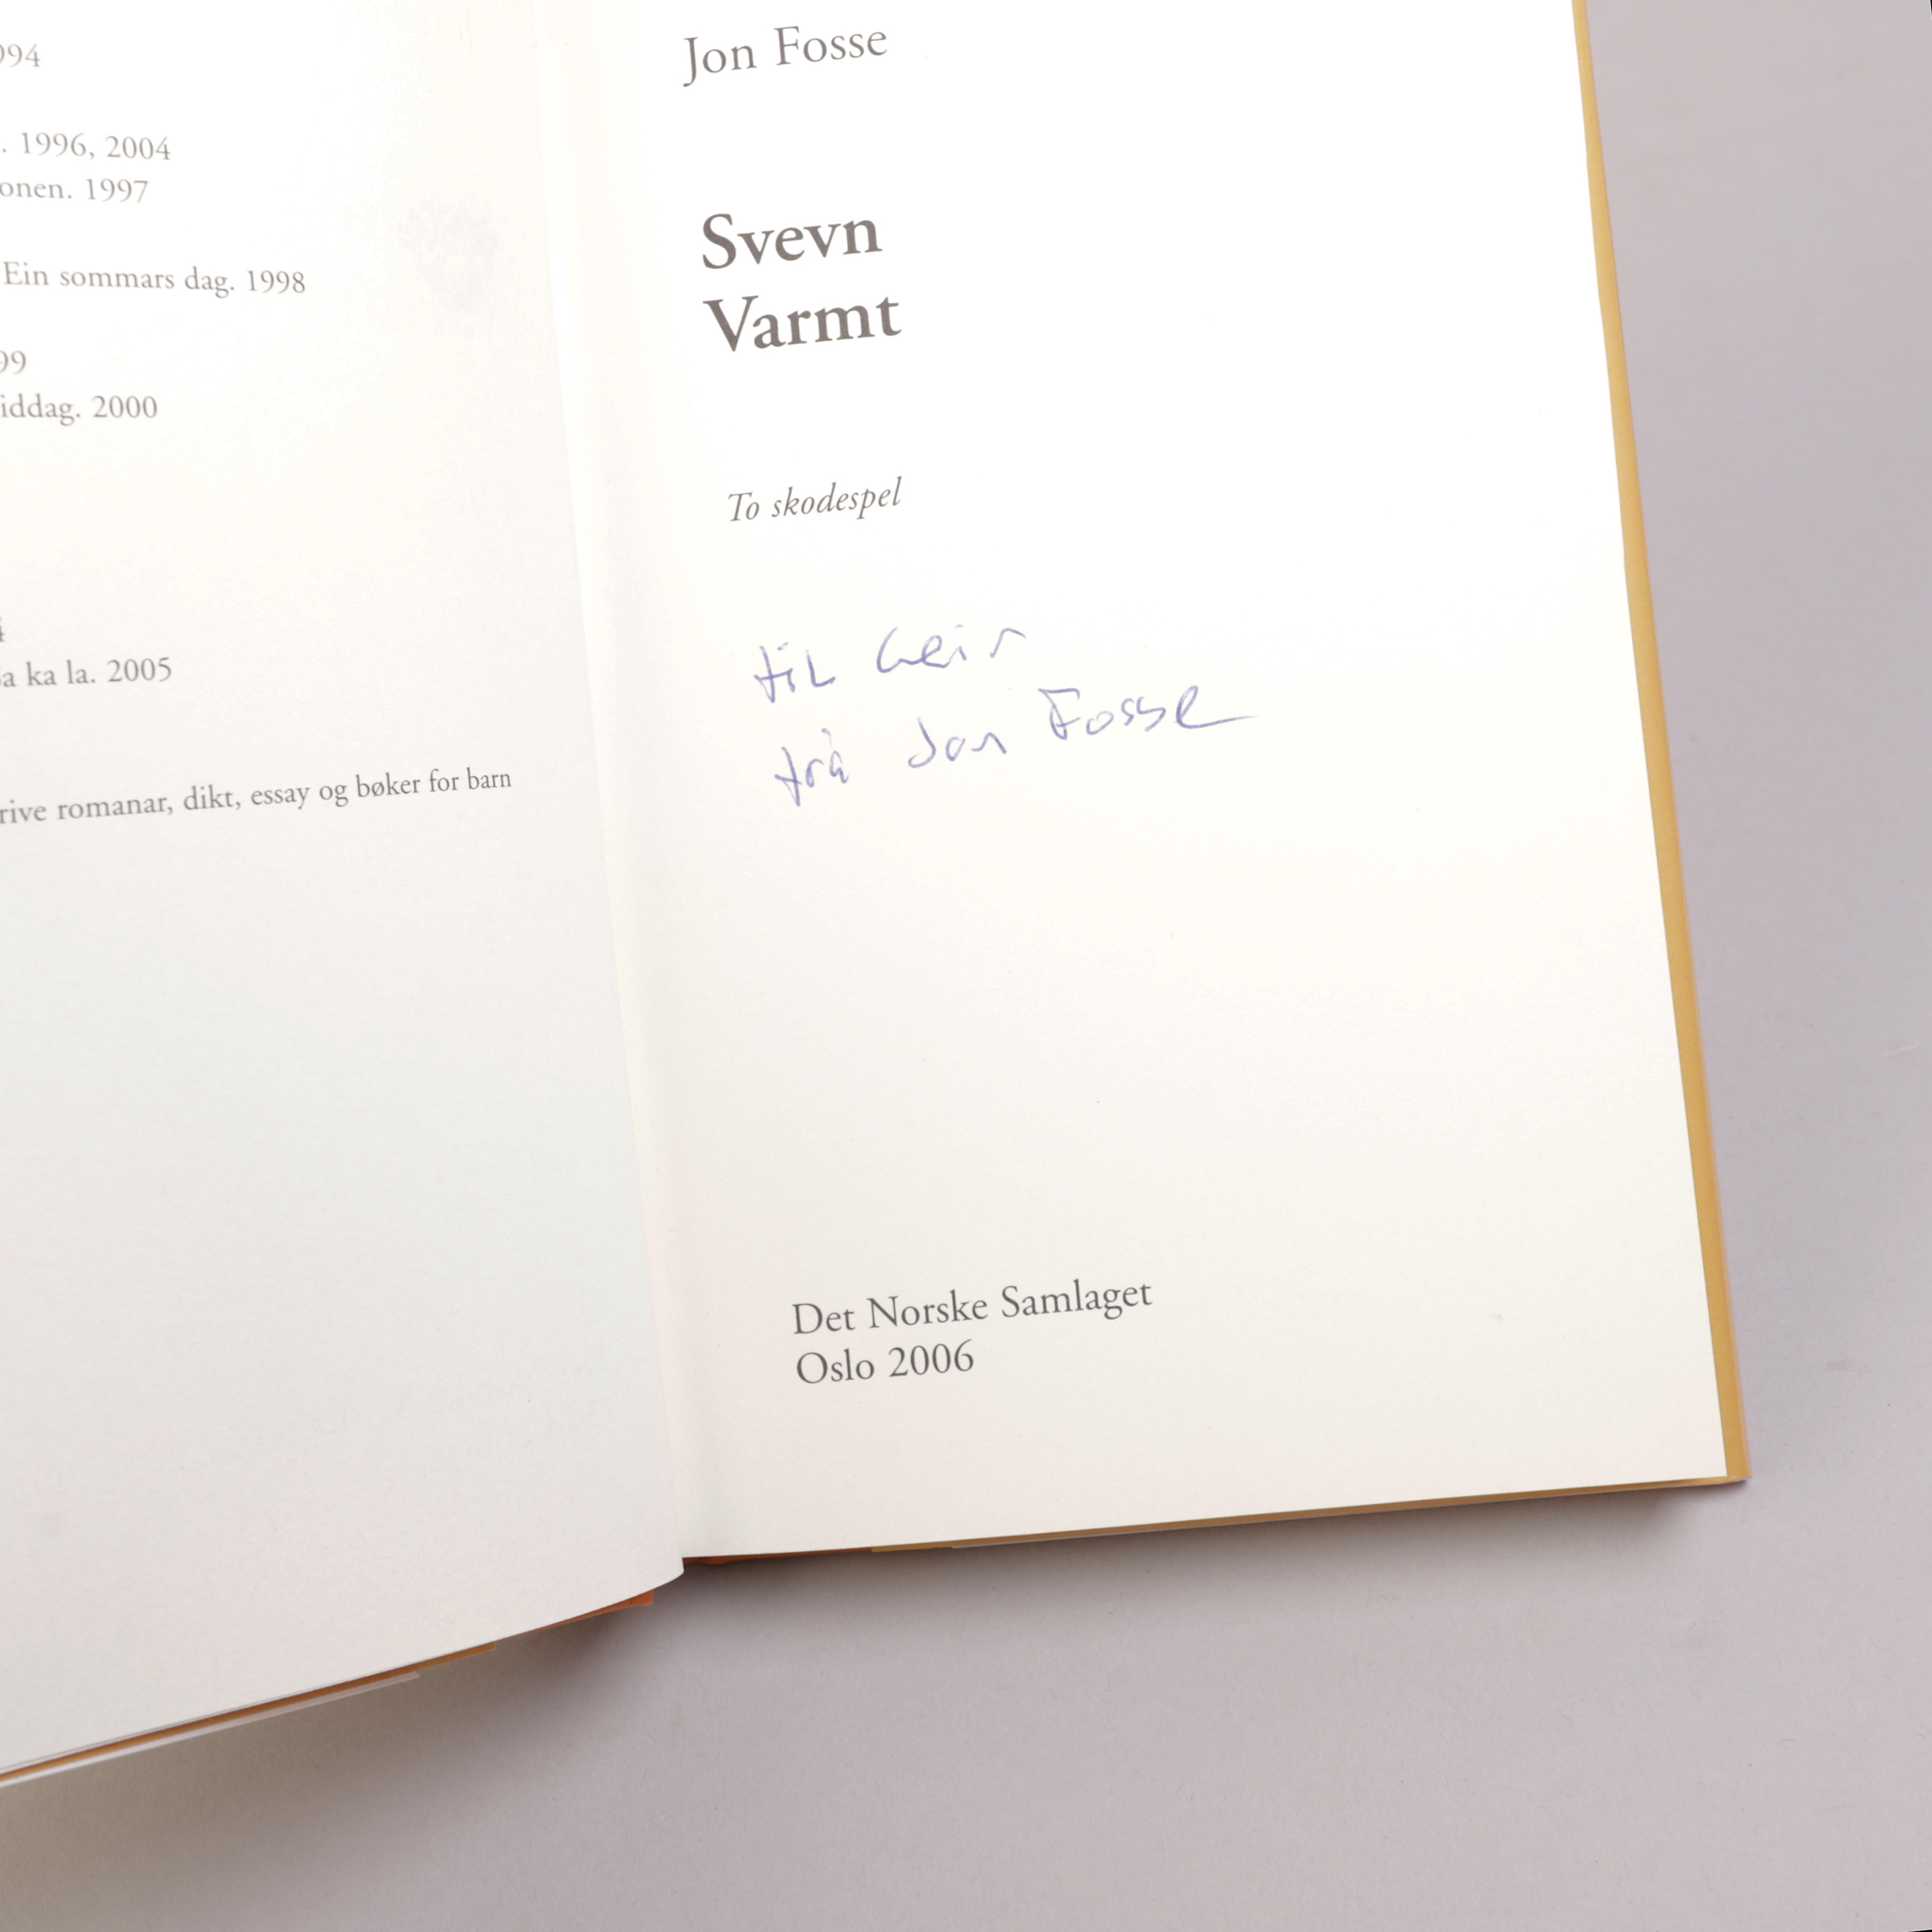 994
. 1996, 2004
onen. 1997
Ein sommars dag. 1998
99
iddag. 2000
a ka la. 2005
rive romanar, dikt, essay og bøker for barn
Jon Fosse
Svevn
Varmt
To skodespel
til Geir
frå Jon Fosse
Det Norske Samlaget
Oslo 2006